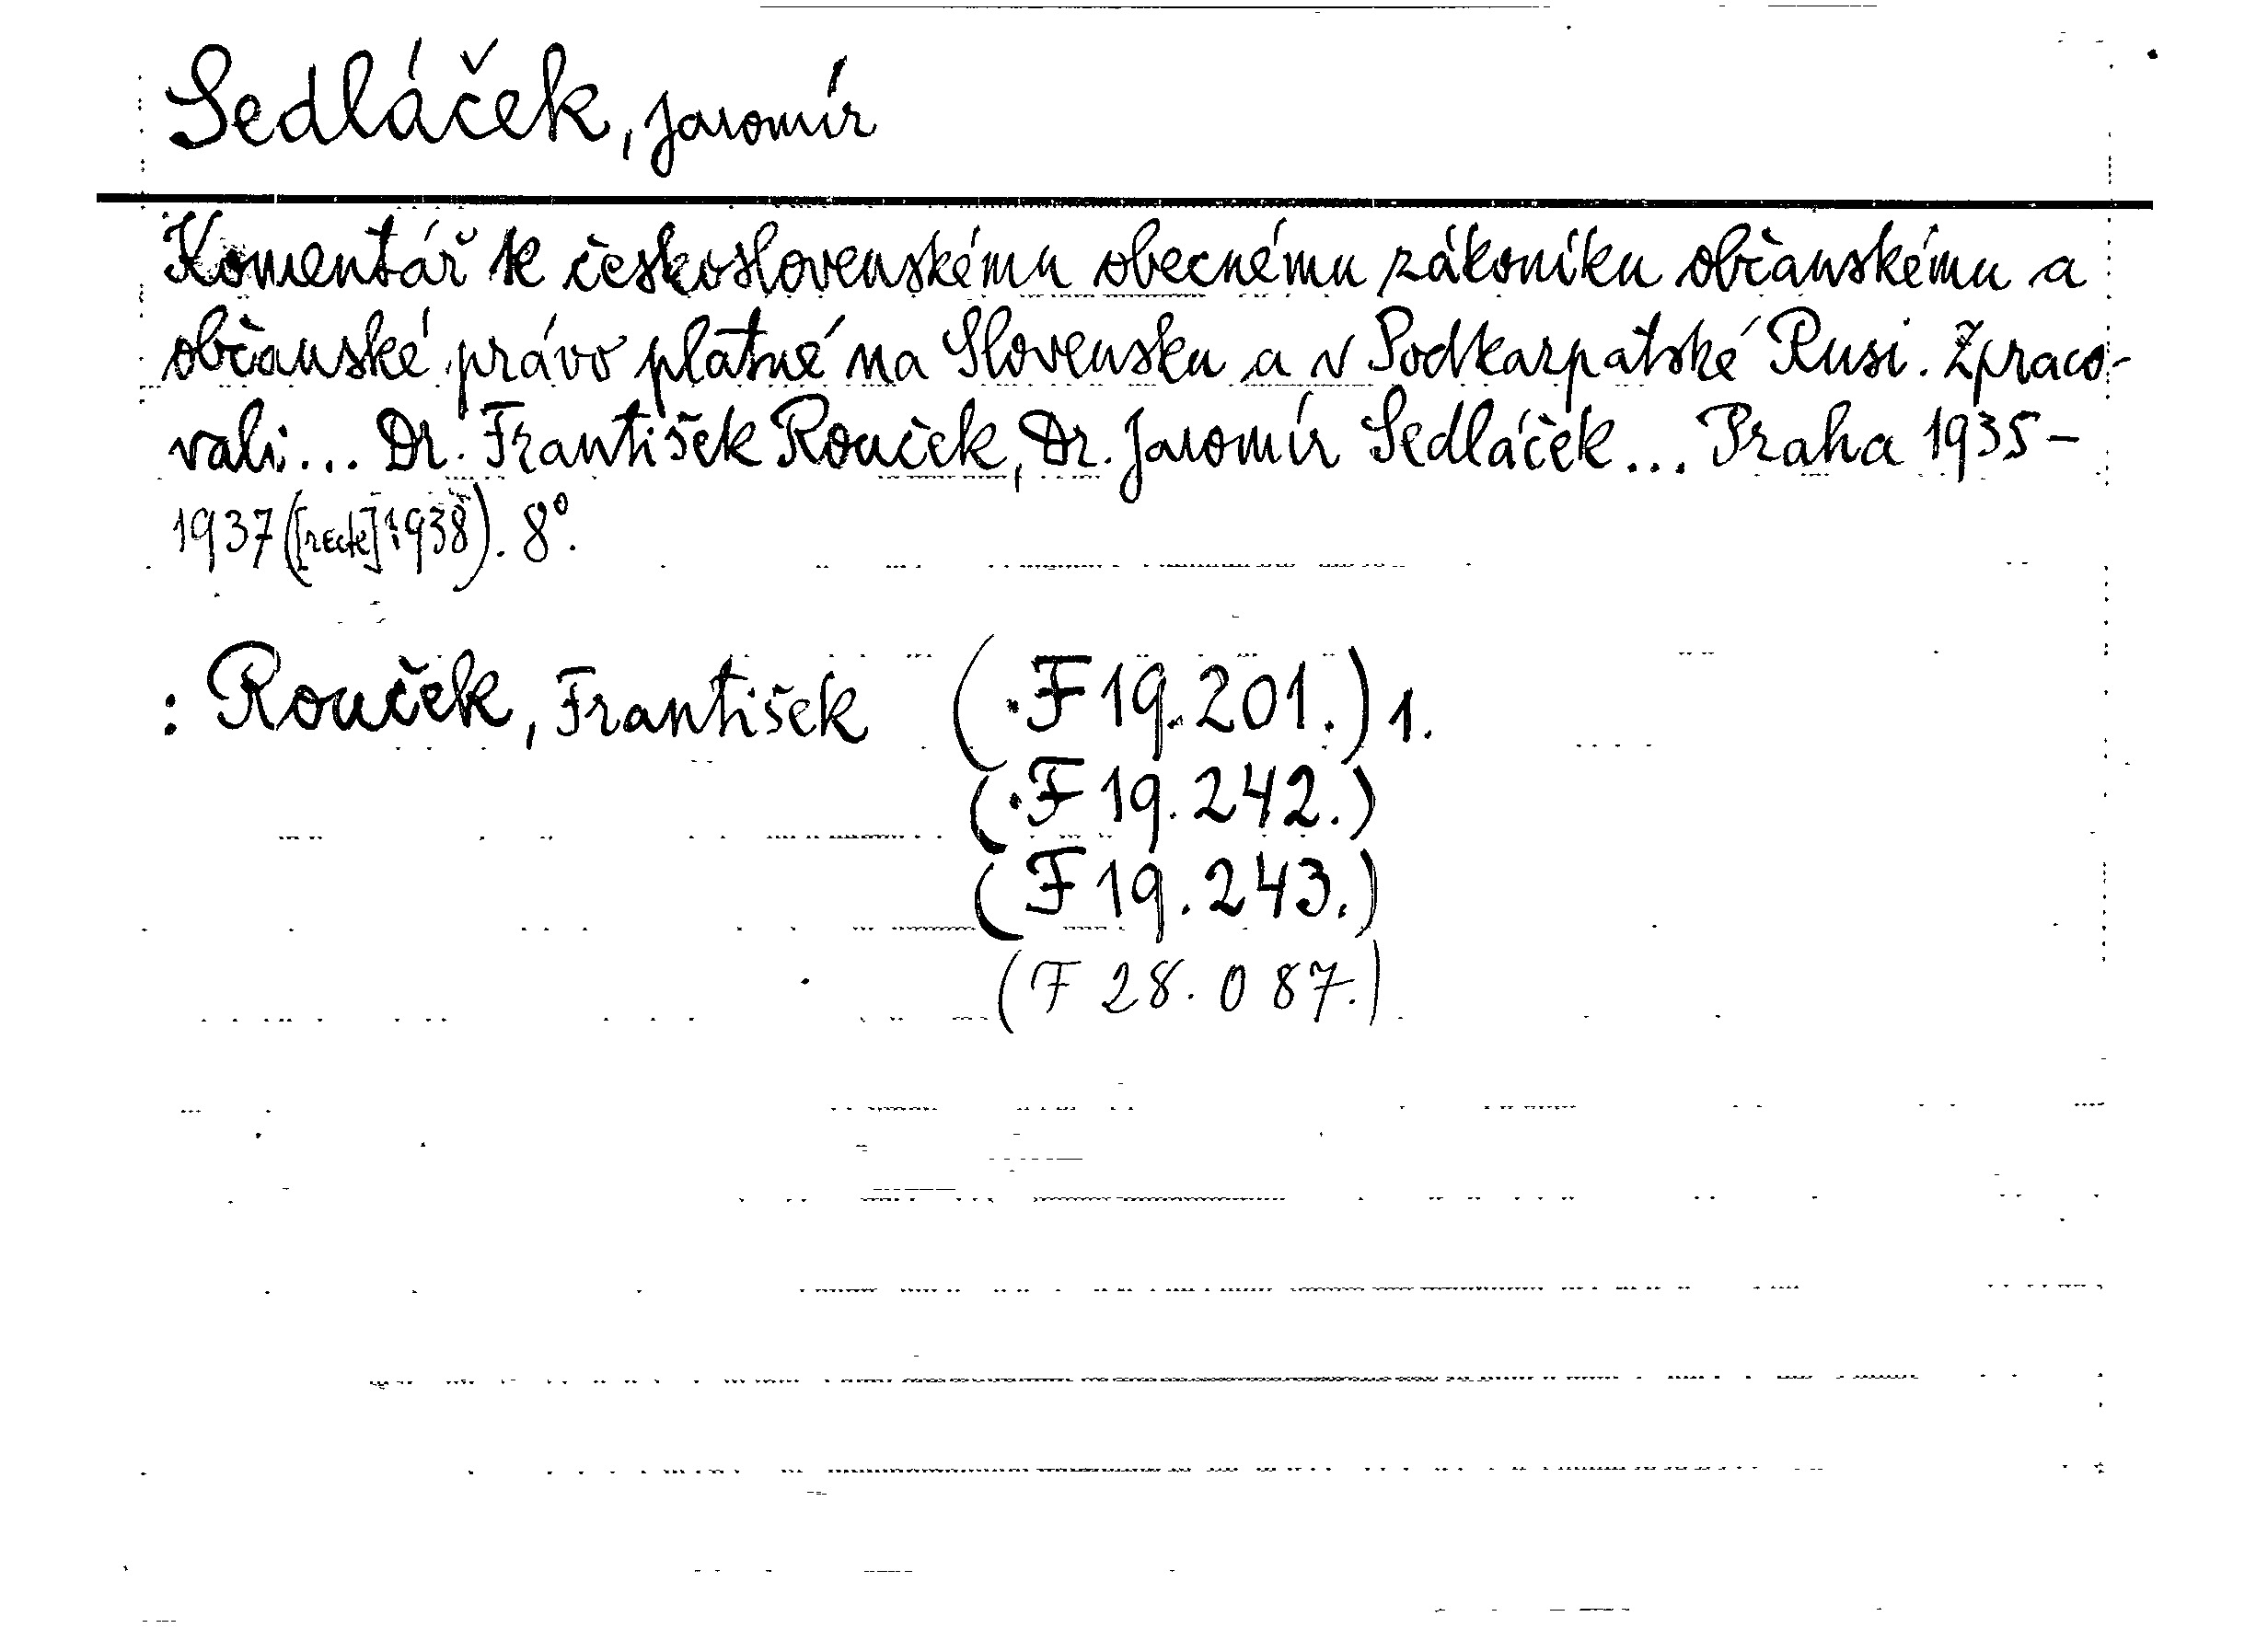 Sedláček, Jaromír
Komentář k československému obecnému zákoníku občanskému a
občanské právo platné na Slovensku a v Podkarpatské Rusi. Zpraco-
vali... Dr. František Rouček, Dr. Jaromír Sedláček... Praha 1935-
1937 ([recte] 1938). 8°.
: Rouček, František (·F 19.201.) 1.
(·F 19.242.)
(F 19.243.)
(F 28.087.)